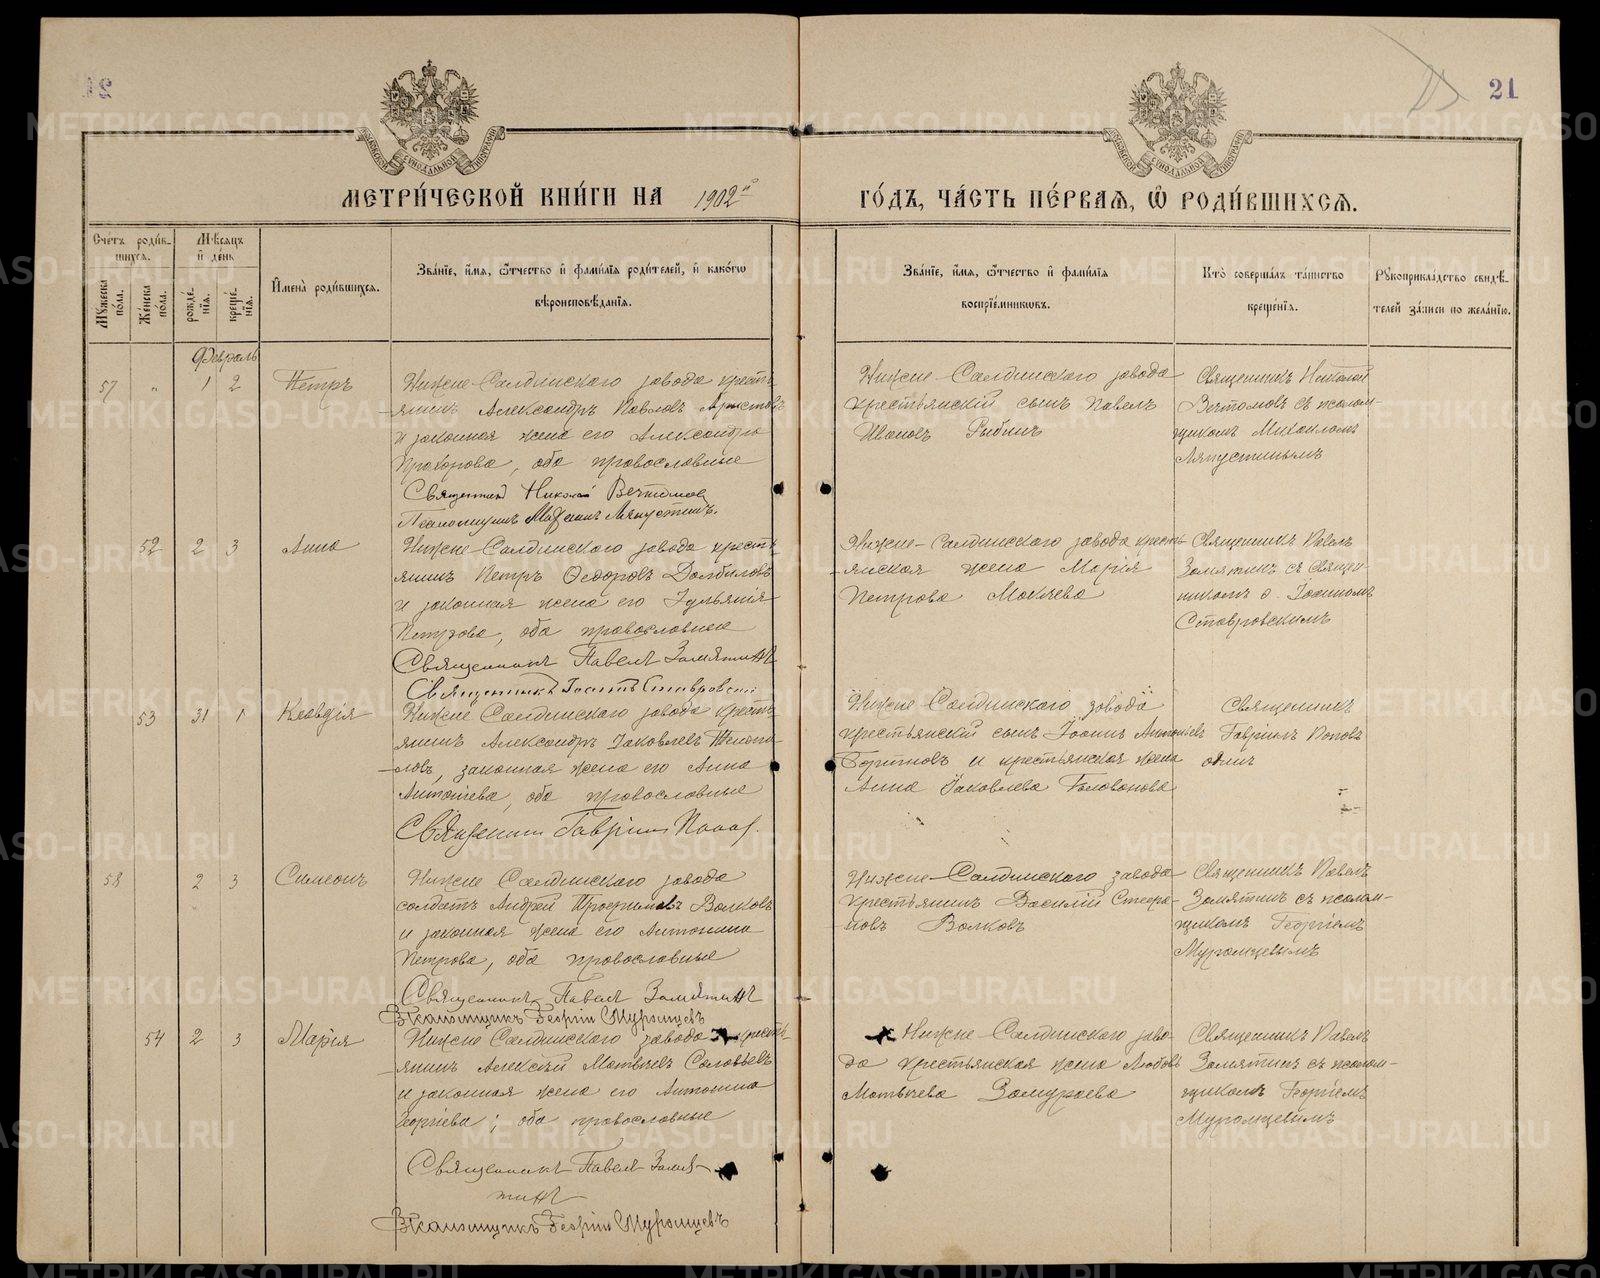 21
МЕТРИ́ЧЕСКОЙ КНИ́ГИ НА 1902й ГО́ДЪ, ЧА́СТЬ ПЕ́РВАѦ, Ѡ РОДИ́ВШИХСѦ.
Сче́тъ роди́в-
шихсѧ.
Мѣ́сѧцъ
и҆ де́нь
Мꙋ́жеска
по́ла.
Же́нска
по́ла.
рожде́-
нїѧ.
креще́-
нїѧ.
И҆мена̀ роди́вшихсѧ.
Зва́нїе, и҆́мѧ, ѻ҆́тчество и҆ фами́лїѧ роди́телей, и҆ како́гѡ
вѣроисповѣ́данїѧ.
Зва́нїе, и҆́мѧ, ѻ҆́тчество и҆ фами́лїѧ
воспрїе́мниковъ.
Кто̀ соверша́лъ та́инство
креще́нїѧ.
Рꙋкоприкла́дство свидѣ́-
телей за́писи по жела́нїю.
Февраль
57 " 1 2 Петръ
Нижне-Салдинскаго завода кресть-
янинъ Александръ Павловъ
и законная жена его Александра
Прохорова, оба православные
Священникъ Николай Вечтомов
Псаломщикъ Михаилъ Ляпустинъ.
Нижне-Салдинскаго завода
крестьянскій сынъ Павелъ
Ивановъ Рыбинъ
Священникъ Николай
Вечтомовъ съ псалом-
щикомъ Михаиломъ
Ляпустинымъ
52 2 3 Анна
Нижне-Салдинскаго завода кресть-
янинъ Петръ Ѳедоровъ Долбиловъ
и законная жена его Іульянія
Петрова, оба православные
Священникъ Павелъ Замятинъ
Священникъ Іоаннъ Ставровскій
Нижне-Салдинскаго завода кресть-
янская жена Марія
Петрова Мокеева
Священникъ Павелъ
Замятинъ съ Священ-
никомъ о. Іоанномъ
Ставровскимъ
53 31 1 Клавдія
Нижне Салдинскаго завода кресть-
янинъ Александръ Іаковлевъ
законная жена его Анна
Антоніева, оба православные
Священникъ Гавріилъ Попов.
Нижне-Салдинскаго завода
крестьянскій сынъ Іоаннъ Антоніевъ
и крестьянская жена
Анна Іаковлева Голованова
Священникъ
Гавріилъ Поповъ
одинъ
58 2 3 Симеонъ
Нижне Салдинскаго завода
солдатъ Андрей Волковъ
и законная жена его Антонина
Петрова, оба православные
Священникъ Павелъ Замятинъ
Псаломщикъ Георгій Муромцевъ
Нижне-Салдинскаго завода
крестьянинъ Василій Стефа-
новъ Волковъ
Священникъ Павелъ
Замятинъ съ псалом-
щикомъ Георгіемъ
Муромцевымъ
54 2 3 Марія
Нижне Салдинскаго завода кресть-
янинъ Алексѣй Матвѣевъ Соловьевъ
и законная жена его Антонина
Георгіева; оба православные
Священникъ Павелъ Замя-
тинъ
Псаломщикъ Георгій Муромцевъ
Нижне-Салдинскаго заво-
да крестьянская жена Любовь
Матвѣева Замураева
Священникъ Павелъ
Замятинъ съ псалом-
щикомъ Георгіемъ
Муромцевымъ
METRIKI.GASO-URAL.RU